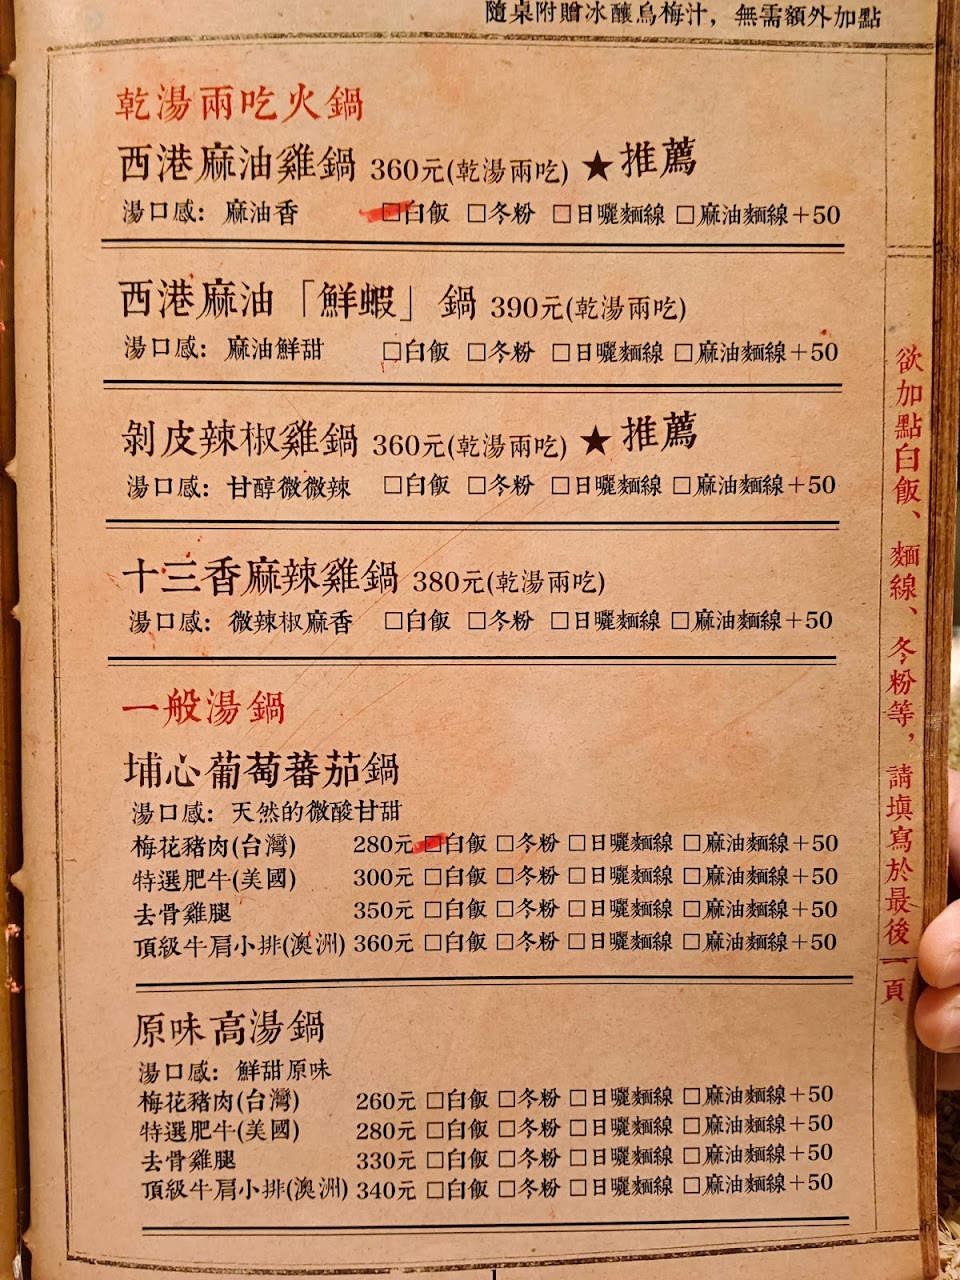 隨桌附贈冰釀烏梅汁，無需額外加點
乾湯兩吃火鍋
西港麻油雞鍋 360元(乾湯兩吃) ★推薦
湯口感：麻油香 □白飯 □冬粉 □日曬麵線 □麻油麵線+50
西港麻油「鮮蝦」鍋 390元(乾湯兩吃)
湯口感：麻油鮮甜 □白飯 □冬粉 □日曬麵線 □麻油麵線+50
剝皮辣椒雞鍋 360元(乾湯兩吃) ★推薦
湯口感：甘醇微微辣 □白飯 □冬粉 □日曬麵線 □麻油麵線+50
十三香麻辣雞鍋 380元(乾湯兩吃)
湯口感：微辣椒麻香 □白飯 □冬粉 □日曬麵線 □麻油麵線+50
一般湯鍋
埔心葡萄蕃茄鍋
湯口感：天然的微酸甘甜
梅花豬肉(台灣) 280元 □白飯 □冬粉 □日曬麵線 □麻油麵線+50
特選肥牛(美國) 300元 □白飯 □冬粉 □日曬麵線 □麻油麵線+50
去骨雞腿 350元 □白飯 □冬粉 □日曬麵線 □麻油麵線+50
頂級牛肩小排(澳洲) 360元 □白飯 □冬粉 □日曬麵線 □麻油麵線+50
原味高湯鍋
湯口感：鮮甜原味
梅花豬肉(台灣) 260元 □白飯 □冬粉 □日曬麵線 □麻油麵線+50
特選肥牛(美國) 280元 □白飯 □冬粉 □日曬麵線 □麻油麵線+50
去骨雞腿 330元 □白飯 □冬粉 □日曬麵線 □麻油麵線+50
頂級牛肩小排(澳洲) 340元 □白飯 □冬粉 □日曬麵線 □麻油麵線+50
欲加點白飯、麵線、冬粉等，請填寫於最後一頁